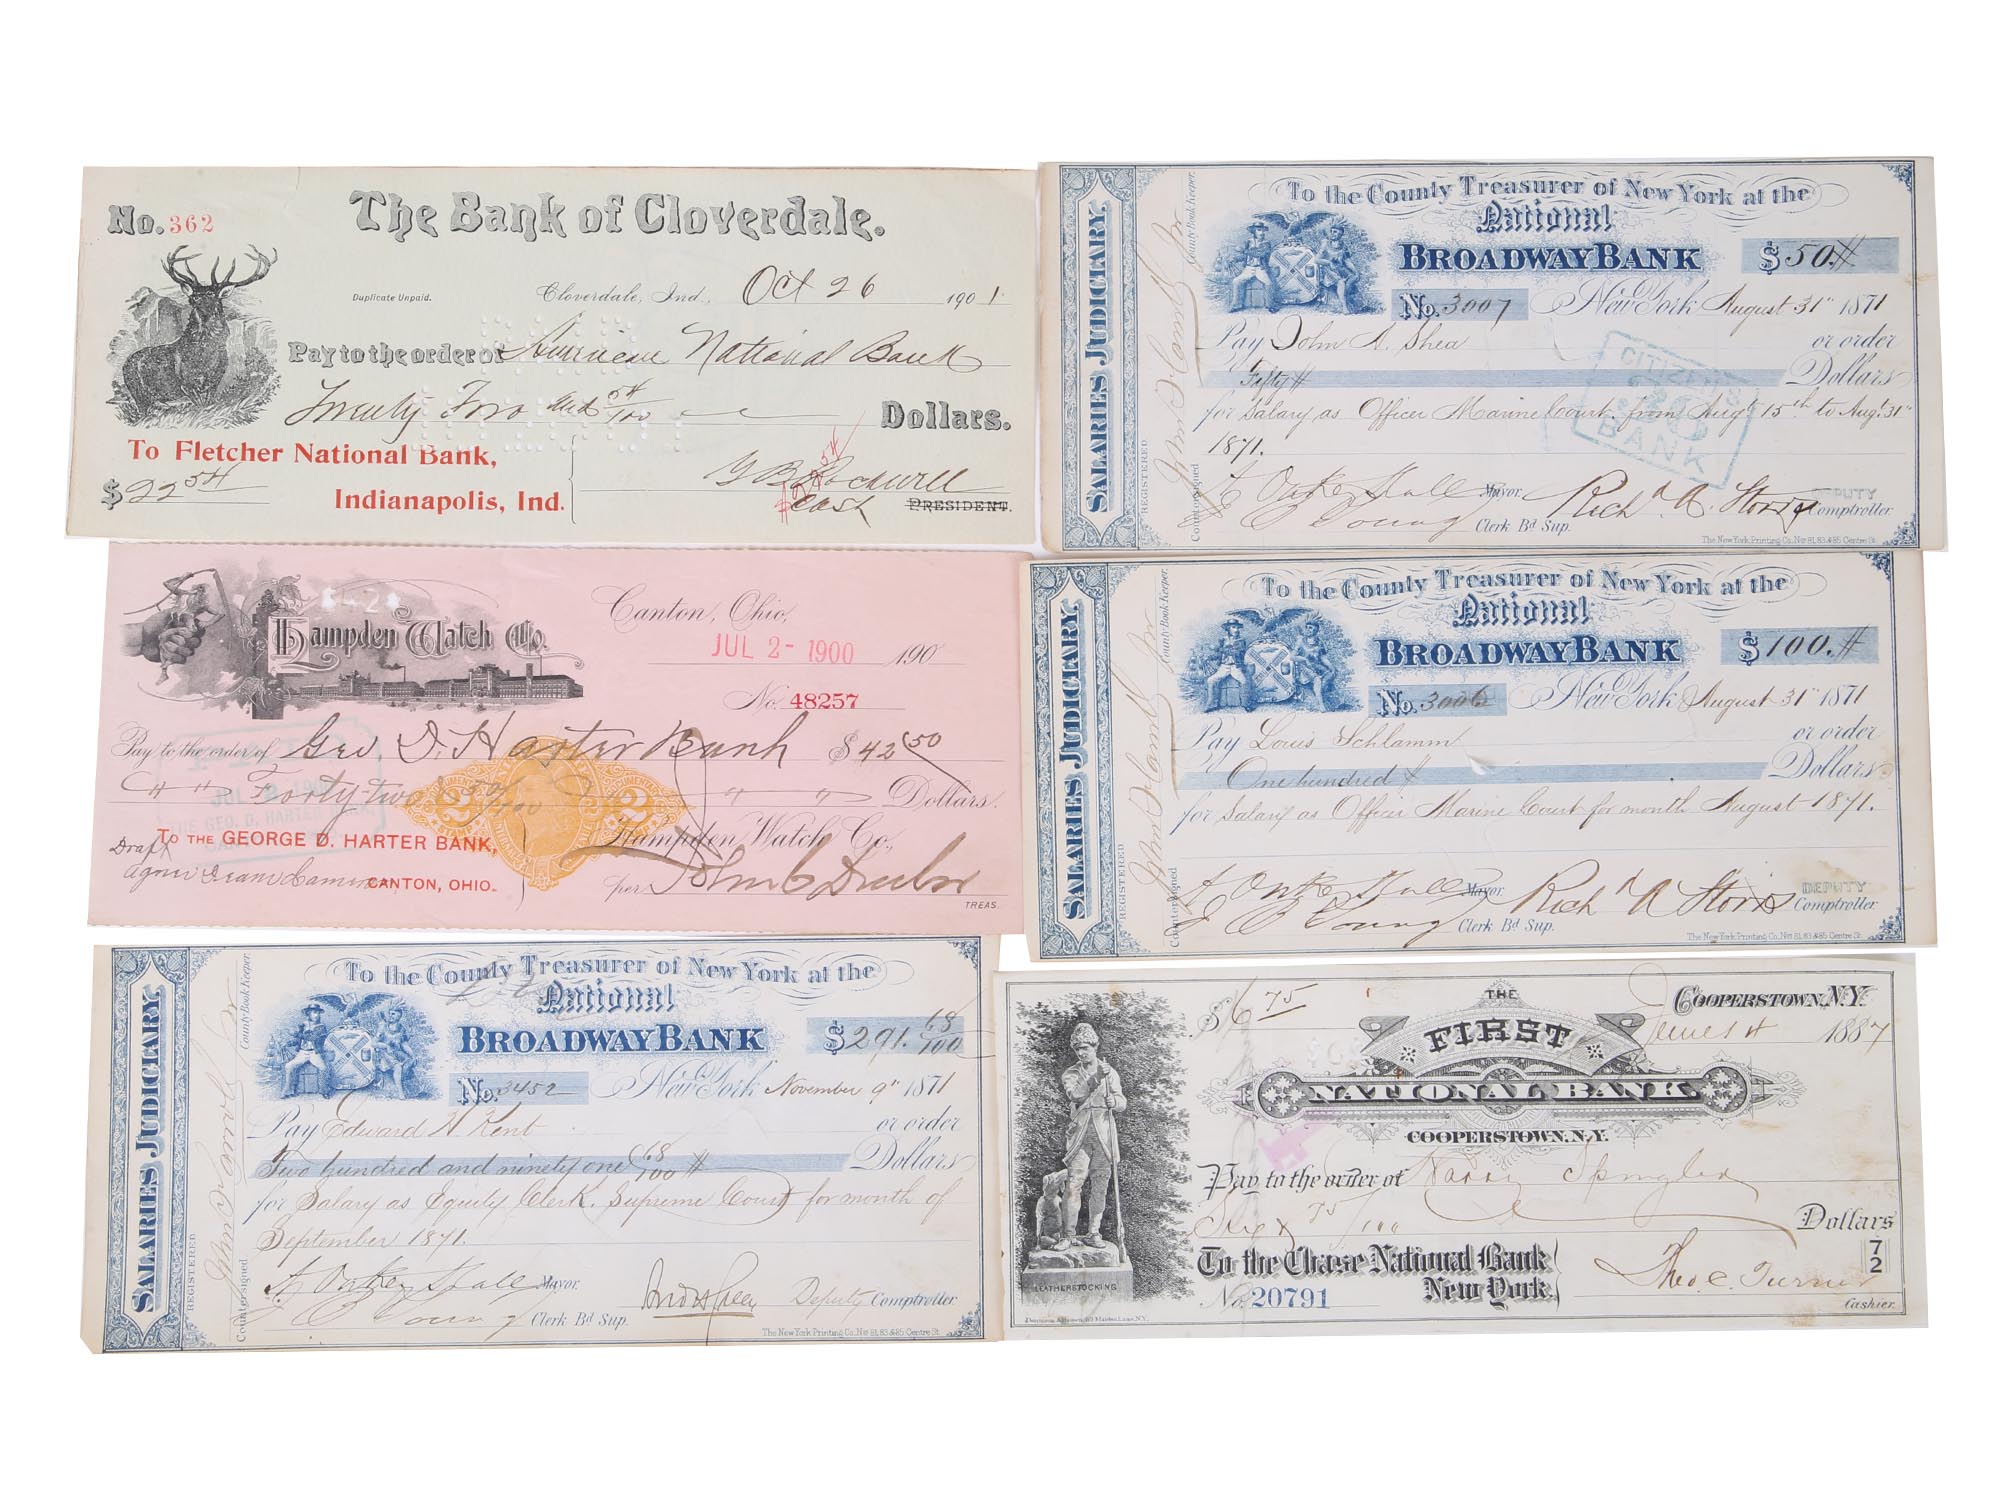 No. 362
The Bank of Cloverdale.
Duplicate Unpaid.
Cloverdale, Ind., Oct 26 1901
Pay to the order of American National Bank
Twenty Two and 54/100 Dollars.
To Fletcher National Bank,
Indianapolis, Ind.
$22 54
Rockwell
Cash PRESIDENT.
Hampden Watch Co.
Canton, Ohio,
JUL 2- 1900 190
No. 48257
Pay to the order of Geo D. Harter Bank $42.50
" " Forty-two 50/100 " " Dollars.
To the GEORGE D. HARTER BANK,
CANTON, OHIO.
Draft
Hampden Watch Co.,
per John C Dueber
TREAS.
SALARIES JUDICIARY.
REGISTERED
Countersigned
County Book Keeper.
To the County Treasurer of New York at the
National
BROADWAY BANK $291.68/100
No. 3452 New York November 9th 1871
Pay Edward H. Kent or order
Two hundred and ninety one 68/100 # Dollars
for Salary as Equity Clerk, Supreme Court for month of
September 1871.
A Oakey Hall Mayor
Young Clerk Bd Sup. Deputy Comptroller
The New York Printing Co. Nos 81, 83 & 85 Centre St.
SALARIES JUDICIARY.
REGISTERED
Countersigned
County Book Keeper.
To the County Treasurer of New York at the
National
BROADWAY BANK $50.#
No. 3007 New York August 31st 1871
Pay John A. Shea or order
Fifty # Dollars
for Salary as Officer Marine Court, from Augt 15th to Augt 31st
1871.
CITIZENS
BANK
A Oakey Hall Mayor. Richd A. Storrs DEPUTY Comptroller
Young Clerk Bd Sup.
The New York Printing Co. Nos 81, 83 & 85 Centre St.
SALARIES JUDICIARY.
REGISTERED
Countersigned
County Book Keeper.
To the County Treasurer of New York at the
National
BROADWAY BANK $100.#
No. 3006 New York August 31st 1871
Pay Louis Schlamm or order
One hundred # Dollars
for Salary as Officer Marine Court for month August 1871.
A Oakey Hall Mayor Richd A Storrs DEPUTY Comptroller
Young Clerk Bd Sup.
The New York Printing Co. Nos 81, 83 & 85 Centre St.
$6 75
COOPERSTOWN, N.Y.
1887
THE
FIRST
NATIONAL BANK
COOPERSTOWN. N.Y.
Pay to the order of Spingler
Six & 75/100 Dollars
To the Chase National Bank
New York.
No. 20791
72
Theo. C. Turner
Cashier.
LEATHERSTOCKING